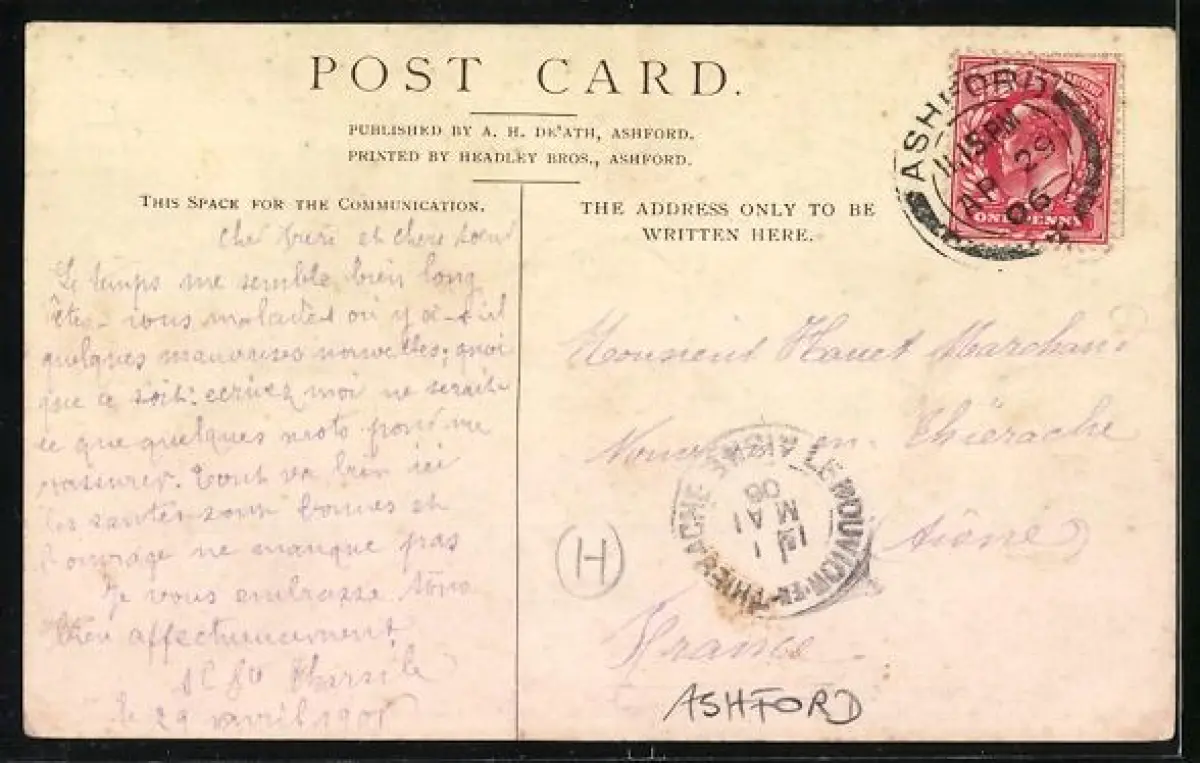 POST CARD.
PUBLISHED BY A. H. DE'ATH, ASHFORD.
PRINTED BY HEADLEY BROS., ASHFORD.
THIS SPACE FOR THE COMMUNICATION.
THE ADDRESS ONLY TO BE
WRITTEN HERE.
ASHFORD
11.15 PM
AP 29
06
ONE PENNY
Cher frère et chère soeur
Le temps me semble bien long
êtes-vous malades ou y a-t-il
quelques mauvaises nouvelles; quoi
que ce soit: écrivez moi ne serait-
ce que quelques mots pour me
rassurer. Tout va bien ici
les santés sont bonnes et
l'ouvrage ne manque pas
Je vous embrasse tous
bien affectueusement
le 29 avril
Monsieur Hauet Marchand
en Thiérache
(Aisne)
France
LE NOUVION-EN-THIERACHE AISNE
1
MAI
06
H
ASHFORD